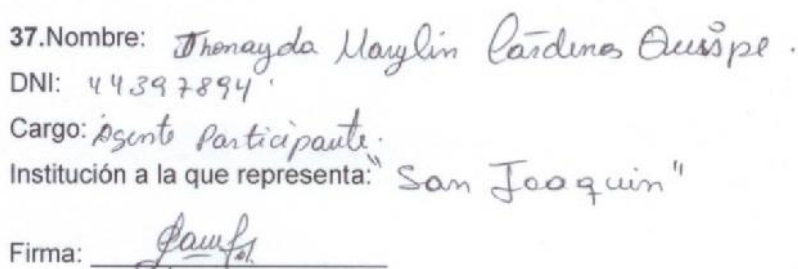 37.Nombre: Jhonayda Marylin Cárdenas Quispe.
DNI: 44397894
Cargo: Agente Participante.
Institución a la que representa: "San Joaquin"
Firma: